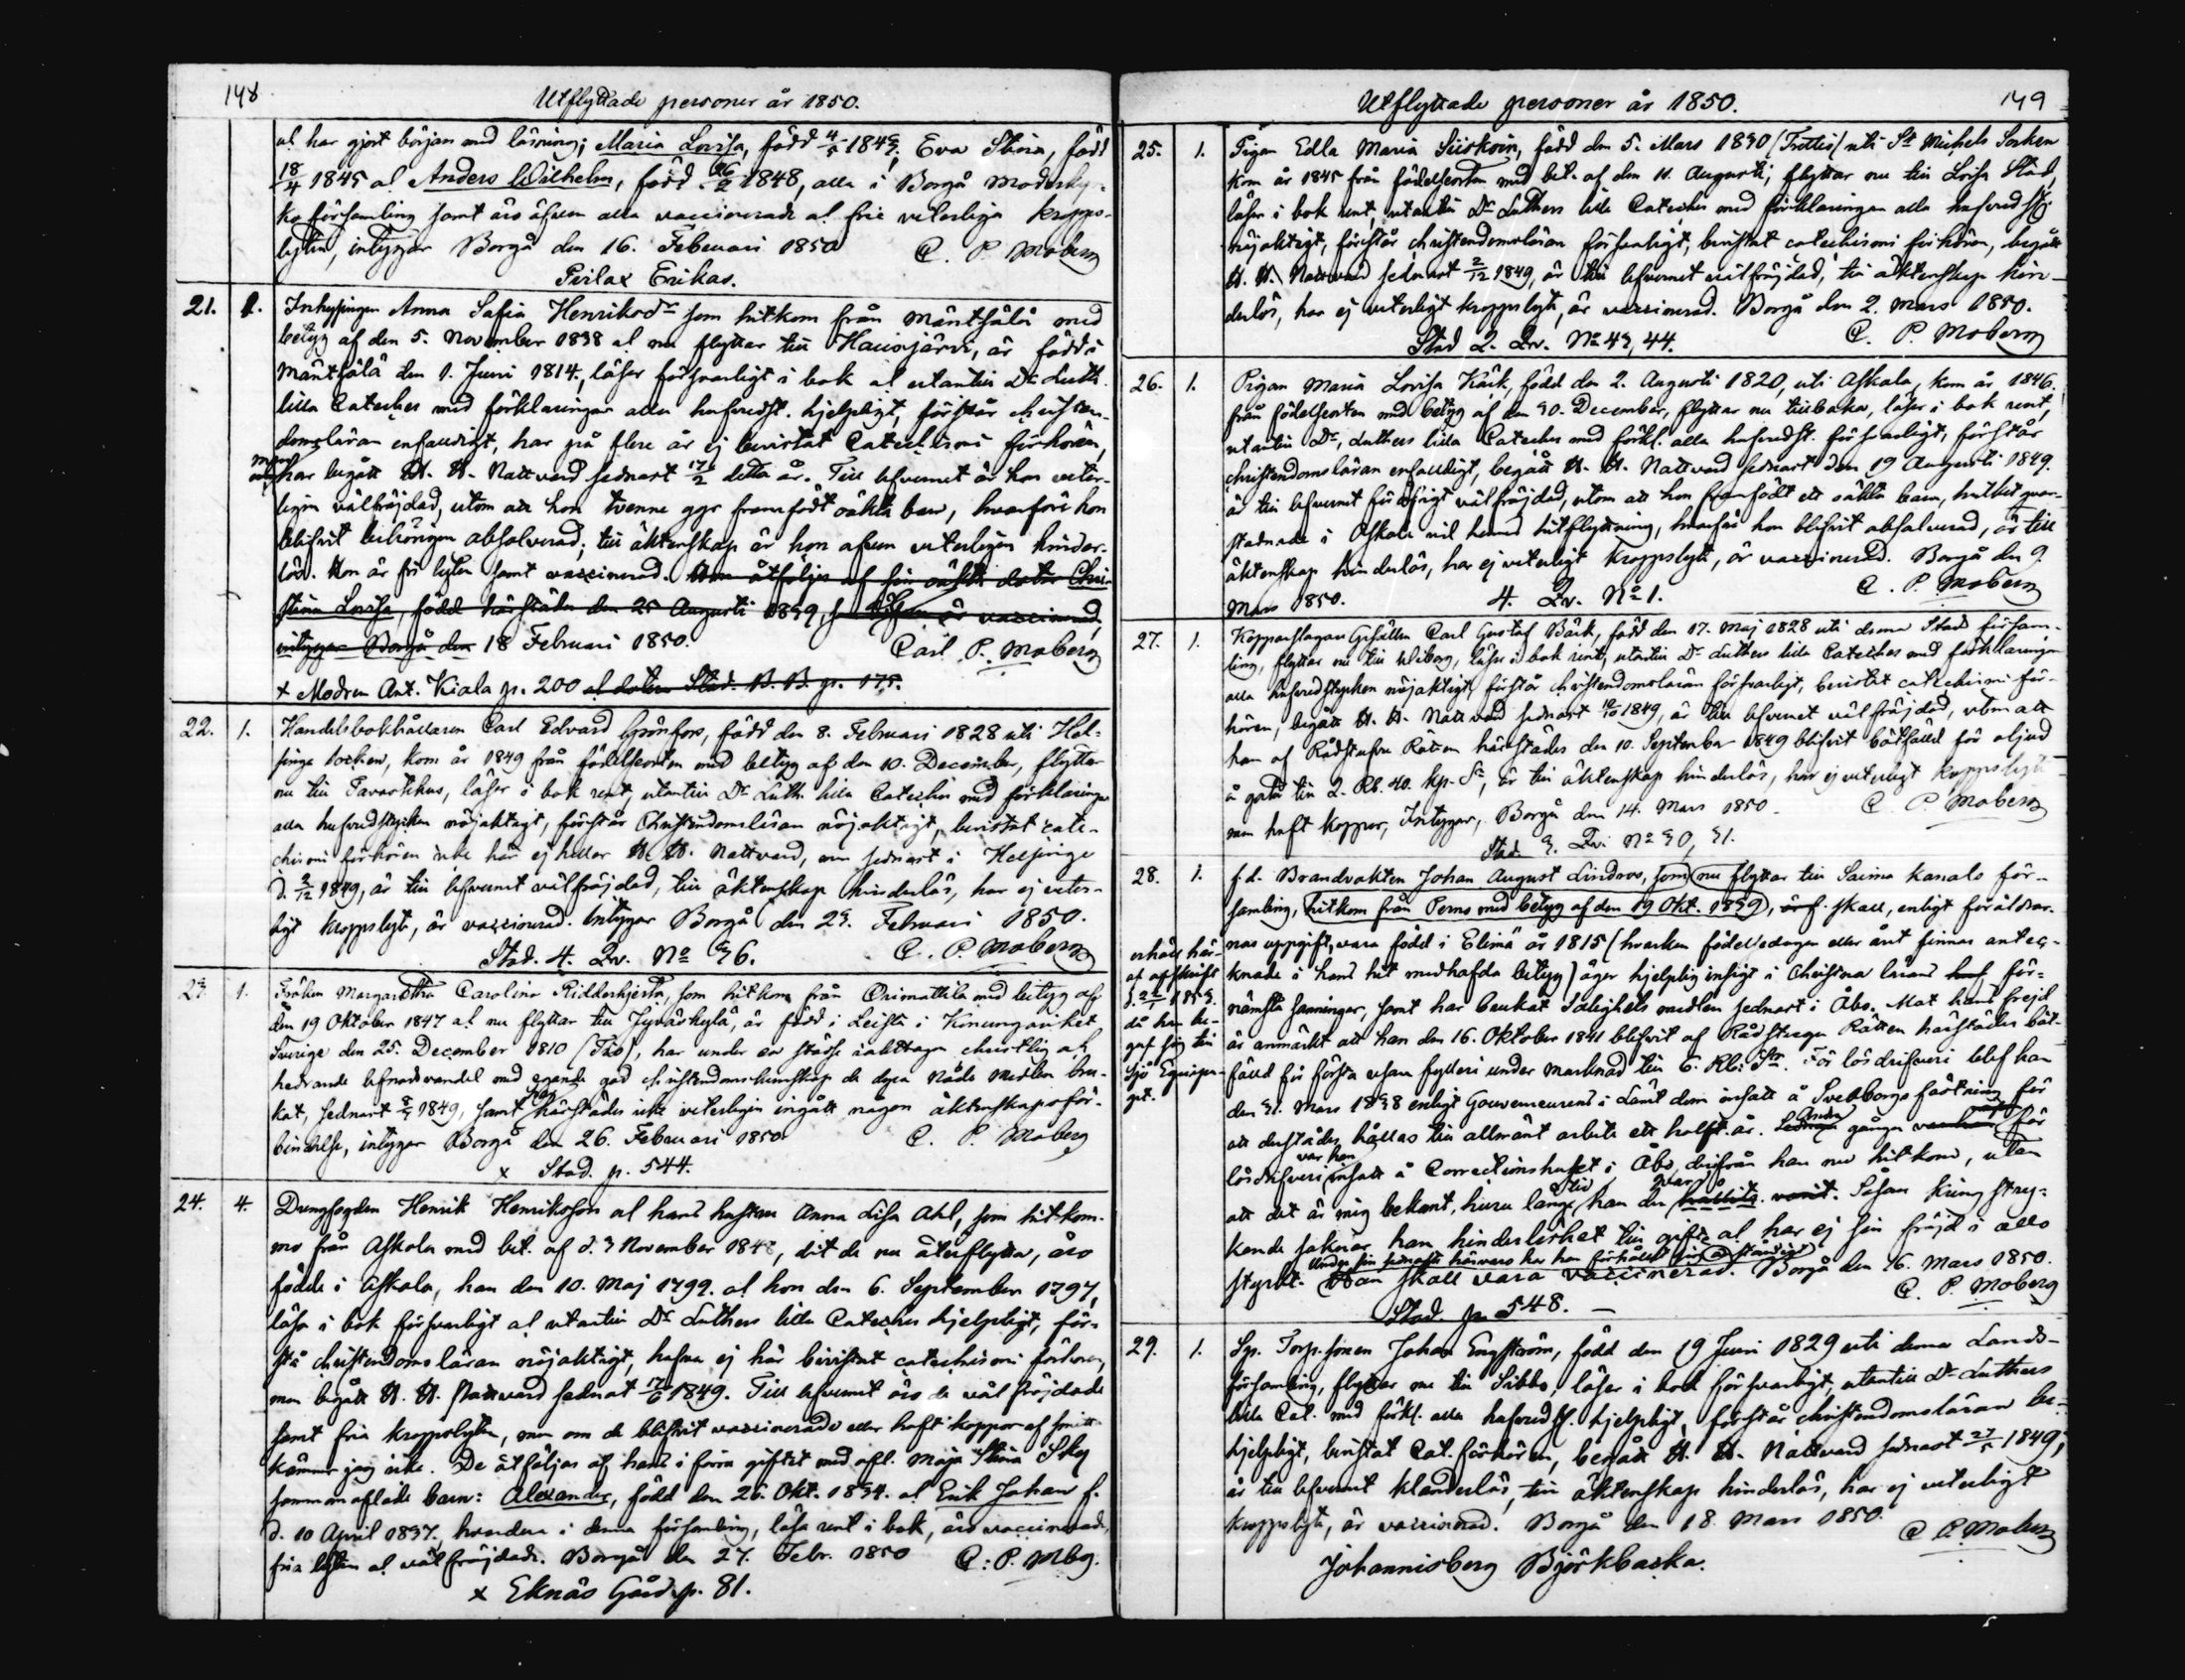 148
Utflyttade personer år 1850.
al har gjort början med läsning; Maria Lovisa, född 4/5 1843, Eva Stina, född
18/4 1845 al Anders Wilhelm, född 26/2 1848, alla i Borgå Moderkyr-
ko församling samt äro äfven alla vaccinerade al frie veterliga kropps-
lyten, intygar Borgå den 16. Februari 1850 C. P. Moberg
Pirlax Erikas.
21. 1. Inhysingen Anna Safia Henriksdr som hitkom från Mäntsälä med
betyg af den 5. November 1838 al nu flyttar till Hausjärvi, är född i
Mäntsälä den 1. Juni 1814, läser försvarligt i bok al utantill Dr Luth.
lilla Cateches med förklaringar alla hufvudst. hjelpligt, förstår christen-
domsläran enfaldigt, har på flere år ej bevistat Catechismi förhören,
men har begått H. H. Nattvard sednast 17/2 detta år. Till lefvernet är hon veter-
ligen välfräjdad, utom att hon tvenne ggr framfödt oäkta barn, hvarföre hon
blifvit behörigen absolverad; till äktenskap är hon äfven veterligen hinder-
lös. Hon är fri lyten samt vaccinerad. Hon åtföljes af sin oäkta dotter Chri-
stina Lovisa, född härstädes den 25 Augusti 1839, är vaccinerad,
intygar Borgå den 18 Februari 1850. Carl P. Moberg
x Modren Ant. Kiala p. 200 al dotern Stad. B. B. p. 175.
22. 1. Handelsbokhållaren Carl Edvard Grönfors, född den 8. Februari 1828 uti Hel-
singe socken, kom år 1849 från födelseorten med betyg af den 10. December, flyttar
nu till Tavastehus, läser i bok rent, utantill Dr Luth. lilla Cateches med förklaringar
alla hufvudstycken nöjaktigt, förstår Christendomsläran nöjaktigt, bevistat cate-
chismi förhören icke här ej heller H. H. Nattvard, men sednast i Helsinge
d. 2/12 1849, är till lefvernet välfräjdad, till äktenskap hinderlös, har ej veter-
ligt kroppslyte, är vaccinerad. Intygar Borgå den 23. Februari 1850.
Stad. 4. Qv. No 36. C. P. Moberg
23. 1. Fröken Margaretha Carolina Ridderhjerta, som hitkom från Orimattila med betyg af
den 19 Oktober 1847 al nu flyttar till Jyväskylä, är född i Leista i Konungariket
Sverige den 25. December 1810 (Tio), har under en städse iakttagen christlig och
hedrande lefnadsvandel med egande god christendomskunskap de dyra Nåde medlen bru-
kat, sednast 1849, samt har härstädes icke veterligen ingått någon äktenskapsför-
bindelse, intygar Borgå den 26. Februari 1850 C. P. Moberg
x Stad. p. 544.
24. 4. Drengfogden Henrik Henriksson al hans hustru Anna Lisa Ahl, som hitkom-
mo från Askola med bet. af d. 3 November 1848, dit de nu återflytta, äro
födde i Askola, han den 10. Maj 1799. al hon den 6. September 1797,
läsa i bok försvarligt al utantill Dr Luthers lilla Cateches hjelpligt, för-
stå christendomsläran nöjaktigt, hafva ej här bevistat catechismi förhören,
men begått H. H. Nattvard sednast 17/6 1849. Till lefvernet äro de välfräjdade
samt fria kroppslyten, men om de blifvit vaccinerade eller haft koppor af smitta
känner jag icke. De åtföljas af hans i förra giftet med afl. Maja Stina Sky
sammanaflade barn: Alexander, född den 26. Okt. 1834. al Erik Johan f.
d. 10 April 1837, hvardera i denna församling, läsa rent i bok, äro vaccinerade,
fria lyten al välfräjdade. Borgå den 27. Febr. 1850 C: P. Mbg.
x Eknäs Gård p. 81.
Utflyttade personer år 1850.
149
25. 1. Pigan Edla Maria Siiskoin, född den 5. Mars 1830 (Trettio) uti St Michels Socken
kom år 1845 från födelseorten med bet. af den 11. Augusti, flyttar nu till Lovisa Stad,
läser i bok rent, utantill Dr Luthers lilla Cateches med förklaringar alla hufvudst.
nöjaktigt, förstår christendomsläran försvarligt, bevistat catechismi förhören, begått
H. H. Nattvard sednast 2/12 1849, är till lefvernet välfräjdad, till äktenskap hin-
derlös, har ej veterligt kroppslyte, är vaccinerad. Borgå den 2. Mars 1850.
Stad 2. Qv. No 43, 44. C. P. Moberg
26. 1. Pigan Maria Lovisa Käck, född den 2. Augusti 1820, uti Askola, kom år 1846.
från födelseorten med betyg af den 30. December, flyttar nu tillbaka, läser i bok rent,
utantill Dr, Luthers lilla Cateches med förkl. alla hufvudst. försvarligt, förstår
christendomsläran enfaldigt, begått H. H. Nattvard sednast den 19 Augusti 1849.
är till lefvernet för öfrigt välfräjdad, utom att hon framfödt ett oäkta barn, hvilket qvar-
stadnade i Askola vid hennes hitflyttning, hvarföre hon blifvit absolverad, är till
äktenskap hinderlös, har ej veterligt kroppslyte, är vaccinerad. Borgå den 9.
Mars 1850. 4. Qv. No 1. C. P. Moberg
27. 1. Kopparslagare Gesällen Carl Gustaf Bäck, född den 17. Maj 1828 uti denna Stads försam-
ling, flyttar nu till Wiborg, läser i bok rent, utantill Dr Luthers lilla Cateches med förklaringar
alla hufvudstycken nöjaktigt, förstår christendomsläran försvarligt, bevistat catechismi för-
hören, begått H. H. Nattvard sednast 1849, är till lefvernet välfräjdad, utom att
han af Rådstufvu Rätten härstädes den 10. September 1849 blifvit bötfälld för oljud
å gata till 2. Rb. 40. kp. Sr, är till äktenskap hinderlös, har ej veterligt kroppslyte
men haft koppor, Intygar, Borgå den 14. Mars 1850. C. P. Moberg
Stad. 3. Qv. No 30, 31.
28. 1. f. d. Brandvakten Johan August Lindros, som nu flyttar till Saima kanals för-
samling, hitkom från Perno med betyg af den 19 Okt. 1839, är f. skall, enligt föräldrar-
nas uppgift, vara född i Elimä år 1815 (hvarken födelsedagen eller året finnas anteck-
knade i hans hit medhafda betyg) äger hjelplig insigt i Christna lärans för-
nämsta sanningar, samt har brukat Salighets medlen sednast i Åbo. Mot hans frejd
är anmärkt att han den 16. Oktober 1841 blifvit af Rådstugu Rätten härstädes böt-
fälld för första resan fylleri under marknad till 6. Rb: Sr. För lösdrifveri blef han
den 31. Mars 1838 enligt Gouverneurens i Länet dom insatt å Sveaborgs fästning för
att derstädes hållas till allmänt arbete ett halft år. Andra gången för
lösdrifveri var han insatt å Correctionshuset i Åbo, derifrån han nu hitkom, utan
att det är mig bekant, huru lång tid han der varit. Såsom kringstry-
kande saknar han hinderlöshet till gifte al har ej sin fräjd i allo
Under sin sednaste härvaro har han förhållit sig anständigt
styrkt. Han skall vara vaccinerad. Borgå den 16. Mars 1850.
Stad. p. 548. C. P. Moberg
erhöll här-
af afskrift
då han be-
gaf sig till
Sjö Equipa-
get.
29. 1. Sp. Torp. sonen Johan Engström, född den 19 Juni 1829 uti denna Lands-
församling, flyttar nu till Sibbo, läser i bok försvarligt, utantill Dr Luthers
lilla Cat. med förkl. alla hufvudst. hjelpligt, förstår christendomsläran
hjelpligt, bevistat Cat. förhören, begått H. H. Nattvard sednast 27/5 1849,
är till lefvernet klanderlös, till äktenskap hinderlös, har ej veterligt
kroppslyte, är vaccinerad. Borgå den 18. Mars 1850. C. P. Moberg
Johannisberg Björkbacka.